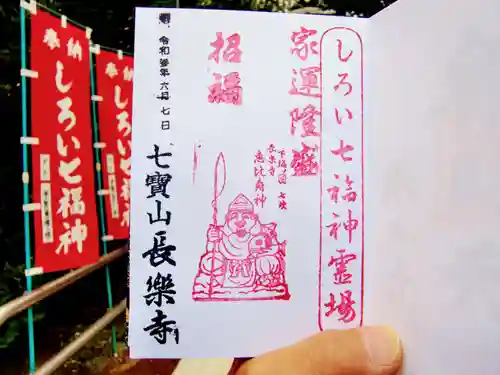 しろい七福神霊場
家運隆盛
招福
下総ノ国 七块
長楽寺
恵比寿神
令和參年六月七日
七寶山長樂寺
奉納
しろい七福神
奉納
しろい七福神